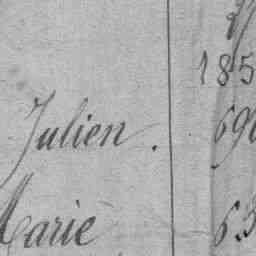 185
Julien. 69
Marie 63